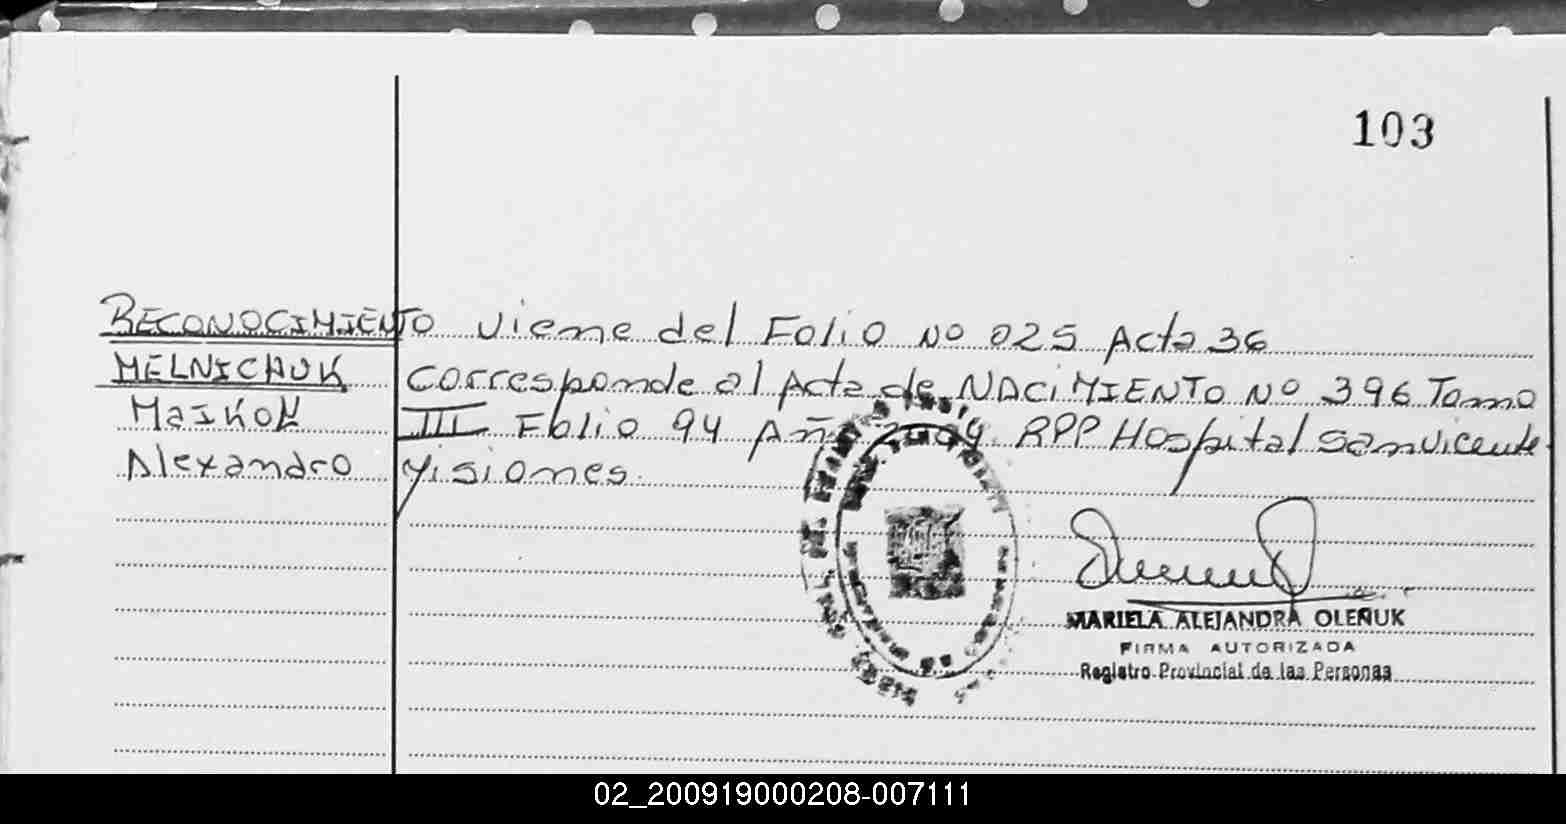 103
RECONOCIMIENTO viene del Folio Nº 025 Acta 36
MELNICHUK corresponde al Acta de NACIMIENTO Nº 396 Tomo
MaIKON III Folio 94 Año RPP Hospital San Vicente
Alexandro Misiones.
MARIELA ALEJANDRA OLEÑUK
FIRMA AUTORIZADA
Registro Provincial de las Personas
02_200919000208-007111